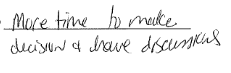 More time to make
decision & have discussions